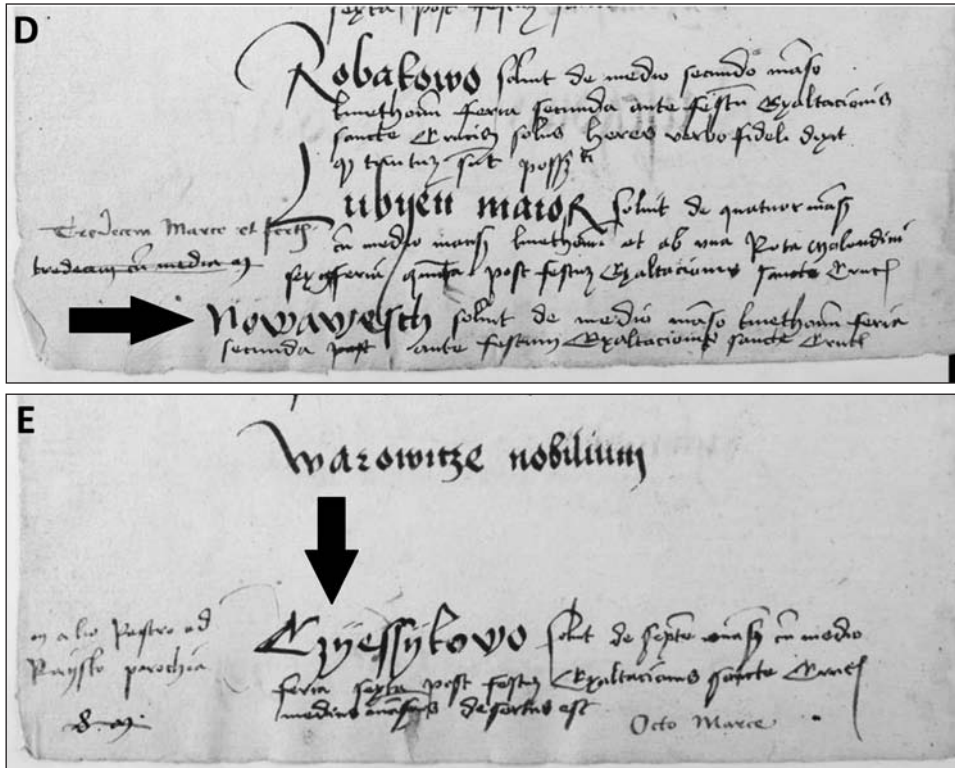 D
sexta post festum
Robakowo solvit de medio secundo manso
kmethonum feria secunda ante festum Exaltacionis
sancte Crucis solus heres verbo fideli dixit
tantum possessionis
Lubyen maior solvit de quatuor mansis
cum medio mansis kmethonum et ab una Rota Molendini
Tredecem Marce et ferth
tredecim cum media
feria quinta post festum Exaltacionis sancte Crucis
Nowawesch solvit de medio manso kmethonum feria
secunda post ante festum Exaltacionis sancte Crucis
E
Warowitze nobilium
in alio Rastro ad
Rzysko parochia
8
Czyessykowo solvit de septem mansis cum medio
feria sexta post festum Exaltacionis sancte Crucis
medius mansus desertus est
Octo Marce